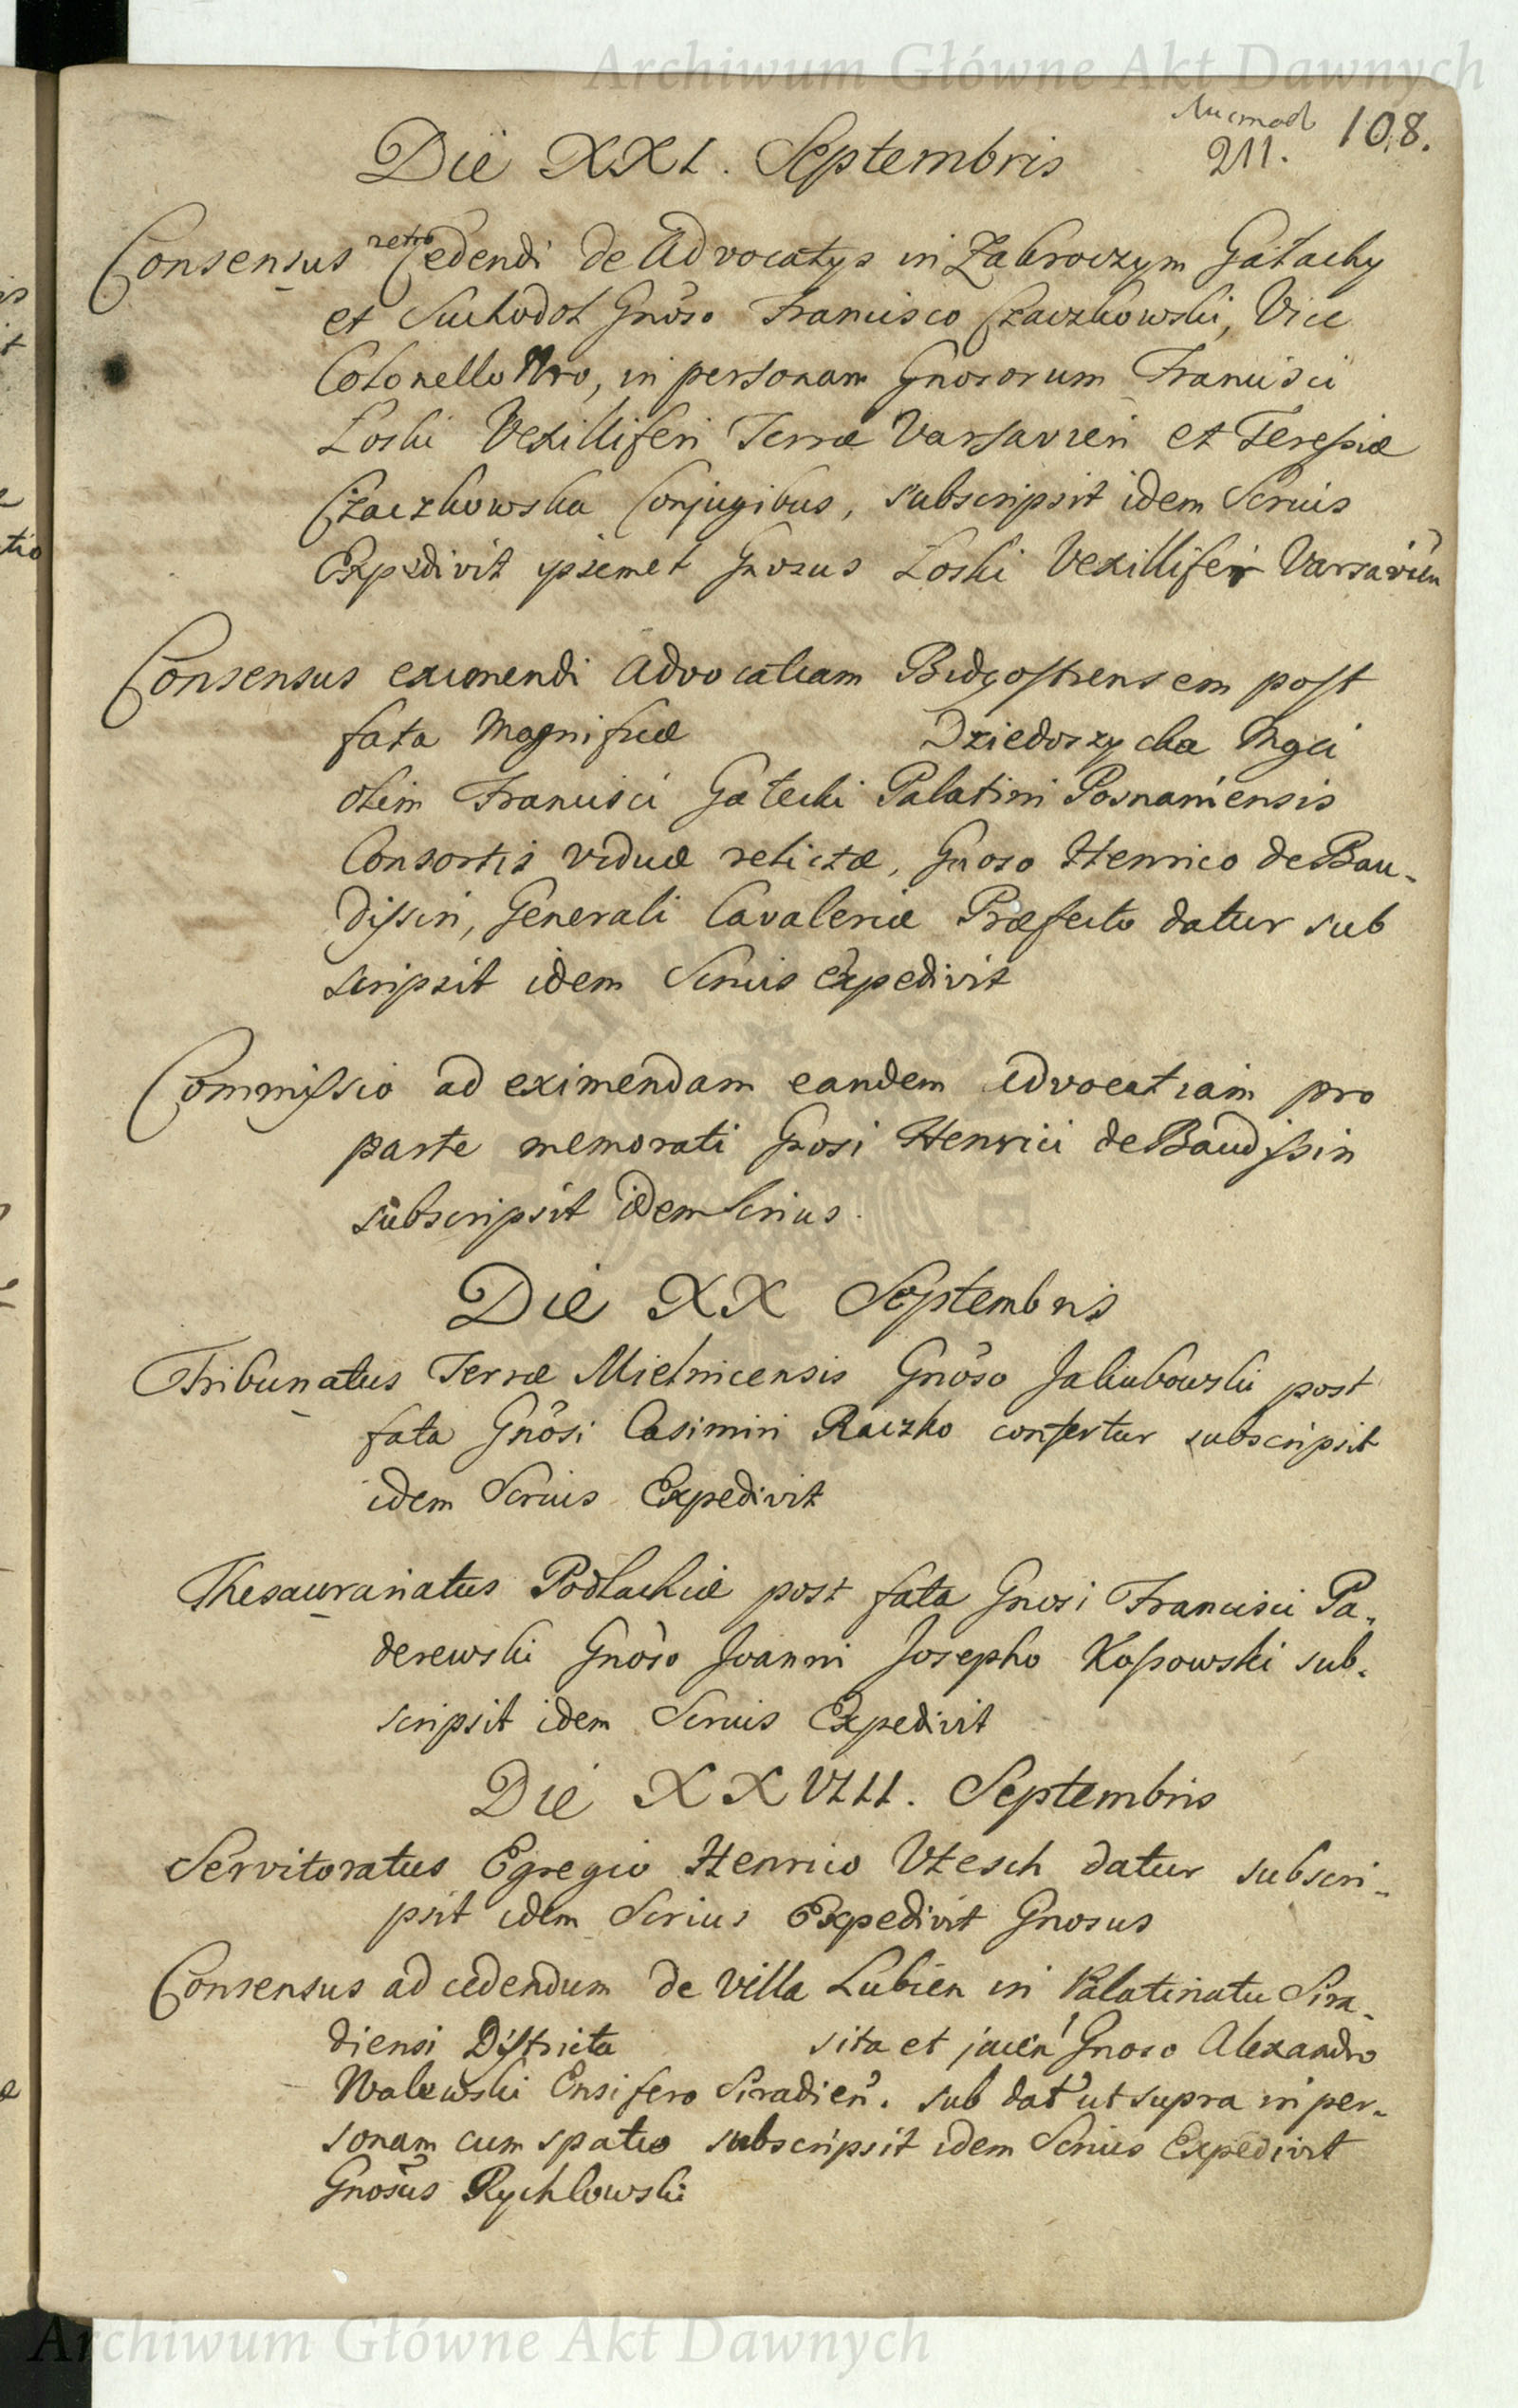 Archiwum Główne Akt Dawnych
Листов 108.
211.
Die XXI. Septembris
Consensus retro Cedendi de Advocatys in Zakroczym Gałachy
et Suchodoł Gnoso Francisco Czaczkowski, Vice
Colonello Nro, in personam Gnosorum Francisci
Loski Vexilliferi Terræ Varsavien et Teressiæ
Czaczkowska Conjugibus, subscripsit idem Serius
Expedivit ipsemet Gnosus Loski Vexillifer Varsavien
Consensus eximendi Advocatiam Bidgostiensem post
fata Magnificæ Dziedoszycka Mgci
olim Francisci Gałecki Palatini Posnaniensis
Consortis viduæ relictæ, Gnoso Henrico de Bau-
dissin, Generali Cavaleriæ Præfecto datur sub
scripsit idem Serius expedivit
Commissio ad eximendam eandem advocatiam pro
parte memorati Gnosi Henrici de Baudissin
subscripsit idem Serius.
Die XX Septembris
Tribunatus Terræ Mielnicensis Gnoso Jakubowski post
fata Gnosi Casimiri Raczko confertur subscripsit
idem Serius Expedivit
Thesauranatus Podlachiæ post fata Gnosi Francisci Pa-
derewski Gnoso Joanni Josepho Kossowski sub-
scripsit idem Serius Expedivit
Die XXVIII. Septembris
Servitoratus Egregio Henrico Utesch datur subscri-
psit idem Serius Expedivit Gnosus
Consensus ad cedendum de Villa Lubien in Palatinatu Sira-
diensi Districta sita et jacen Gnoso Alexandro
Walewski Ensifero Siradien. sub dat ut supra in per-
sonam cum spatio subscripsit idem Serius Expedivit
Gnosus Rychlowski
Archiwum Główne Akt Dawnych